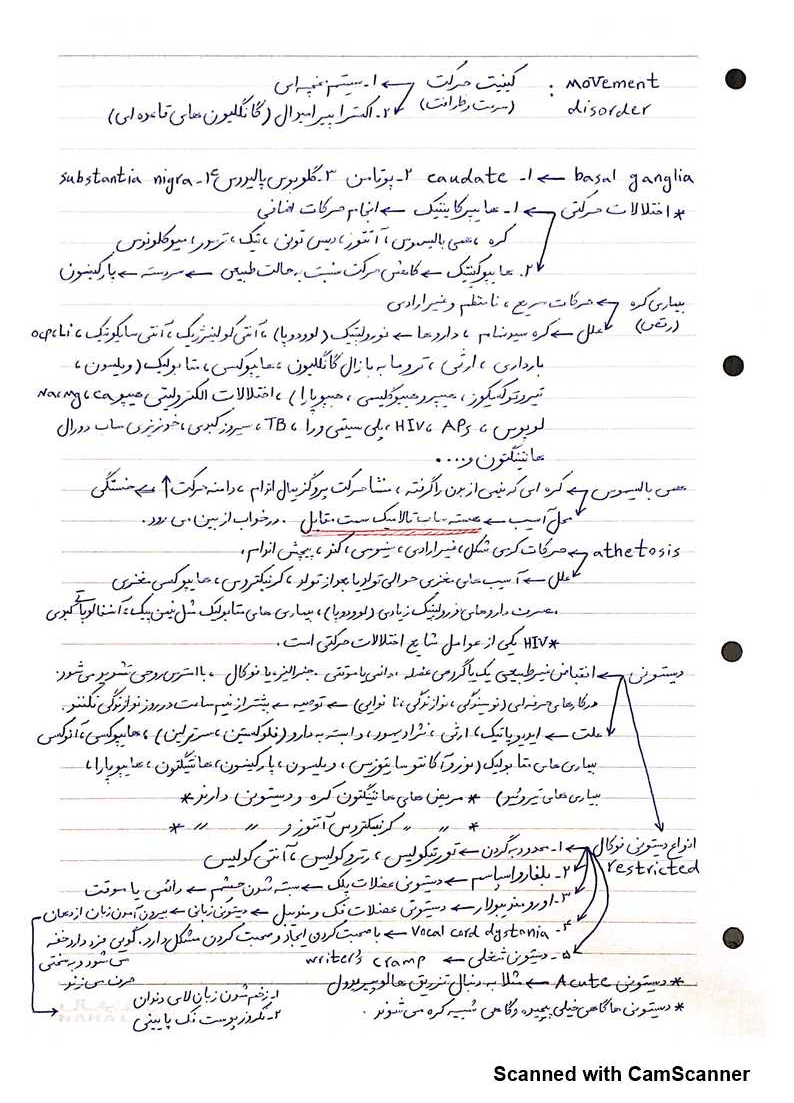 movement disorder : کیفیت حرکت (سرعت و ظرافت) ← ۱- سیستم مخچه ای
۲- اکستراپیرامیدال (گانگلیون های قاعده ای)
basal ganglia ← ۱- caudate ۲- پوتامن ۳- گلوبوس پالیدوس ۴- substantia nigra
* اختلالات حرکتی ← ۱- هایپرکاینتیک ← انجام حرکات اضافی
کره ، همی بالیسموس ، آتتوز ، دیس تونی ، تیک ، ترمور ، میوکلونوس
۲. هایپوکینتیک ← کاهش حرکت نسبت به حالت طبیعی ← سردسته ← پارکینسون
بیماری کره (رقص) ← حرکات سریع ، نامنظم و غیرارادی
علل ← کره سیدنهام ، داروها ← نورولپتیک (لوودوپا) ، آنتی کولینرژیک ، آنتی سایکوتیک ، ocp ، Li
بارداری ، ارثی ، تروما به بازال گانگلیون ، هایپوکسی ، متابولیک (ویلسون ،
تیروتوکسیکوز ، هیپر و هیپوگلیسمی ، هیپوپارا) ، اختلالات الکترولیتی هیپو Ca ، Mg ، Na
لوپوس ، APS ، HIV ، پلی سیتمی ورا ، TB ، سیروز کبدی ، خونریزی ساب دورال
هانتینگتون و ....
همی بالیسموس ← کره ای که نیمی از بدن را گرفته ، منشا حرکت پروگزیمال اندام ، دامنه حرکت ↑ ← خستگی
محل آسیب ← هسته ساب تالامیک سمت مقابل . در خواب از بین می رود .
athetosis ← حرکات کرمی شکل ، غیرارادی ، سینوسی ، کند ، پیچش اندام ،
علل ← آسیب های مغزی حوالی تولد یا بعد از تولد ، کرنیکتروس ، هایپوکسی مغزی
مصرف داروهای نورولپتیک زیادی (لوودوپا) ، بیماری های متابولیک مثل نیمن پیک ، آنسفالوپاتی کبدی
* HIV یکی از عوامل شایع اختلالات حرکتی است .
دیستونی ← انقباض غیرطبیعی یک یا گروهی عضله ، دائمی یا موقتی . جنرالیز یا فوکال . با استرس روحی تشدید می شود .
در کارهای حرفه ای (نویسندگی ، نوازندگی ، نانوایی) ← توصیه ← بیشتر از نیم ساعت در روز نوازندگی نکنند .
علت ← ایدیوپاتیک ، ارثی ، نژاد یهود ، وابسته به دارو (فلوکستین ، سرترالین) ، هایپوکسی ، آنوکسی
بیماری های متابولیک (نوروآکانتوسایتوزیس ، ویلسون ، پارکینسون ، هانتینگتون ، هایپوپارا ،
بیماری های تیروئید) * مریض های هانتینگتون کره و دیستونی دارند *
* " " کرنیکتروس آتتوز و " " *
انواع دیستونی فوکال restricted ← ۱- محدود به گردن ← تورتیکولیس ، رتروکولیس ، آنتی کولیس
۲- بلفارواسپاسم ← دیستونی عضلات پلک ← بسته شدن چشم ← دائمی یا موقت
۳- اورومندیبولار ← دیستونی عضلات فک و مندیبل ← دیستونی زبانی ← بیرون آمدن زبان از دهان
۴- vocal cord dystonia ← با صحبت کردن ایجاد و صحبت کردن مشکل دارد . گویی فرد دارد خفه
می شود و بسختی
۵- دیستونی شغلی ← writer's cramp
حرف می زند
* دیستونی Acute ← مثلا به دنبال تزریق هالوپیریدول
۱- زخم شدن زبان لای دندان
* دیستونی ها گاهی خیلی پیچیده و گاهی شبیه کره می شوند .
۲- نکروز پوست فک پایینی
Scanned with CamScanner